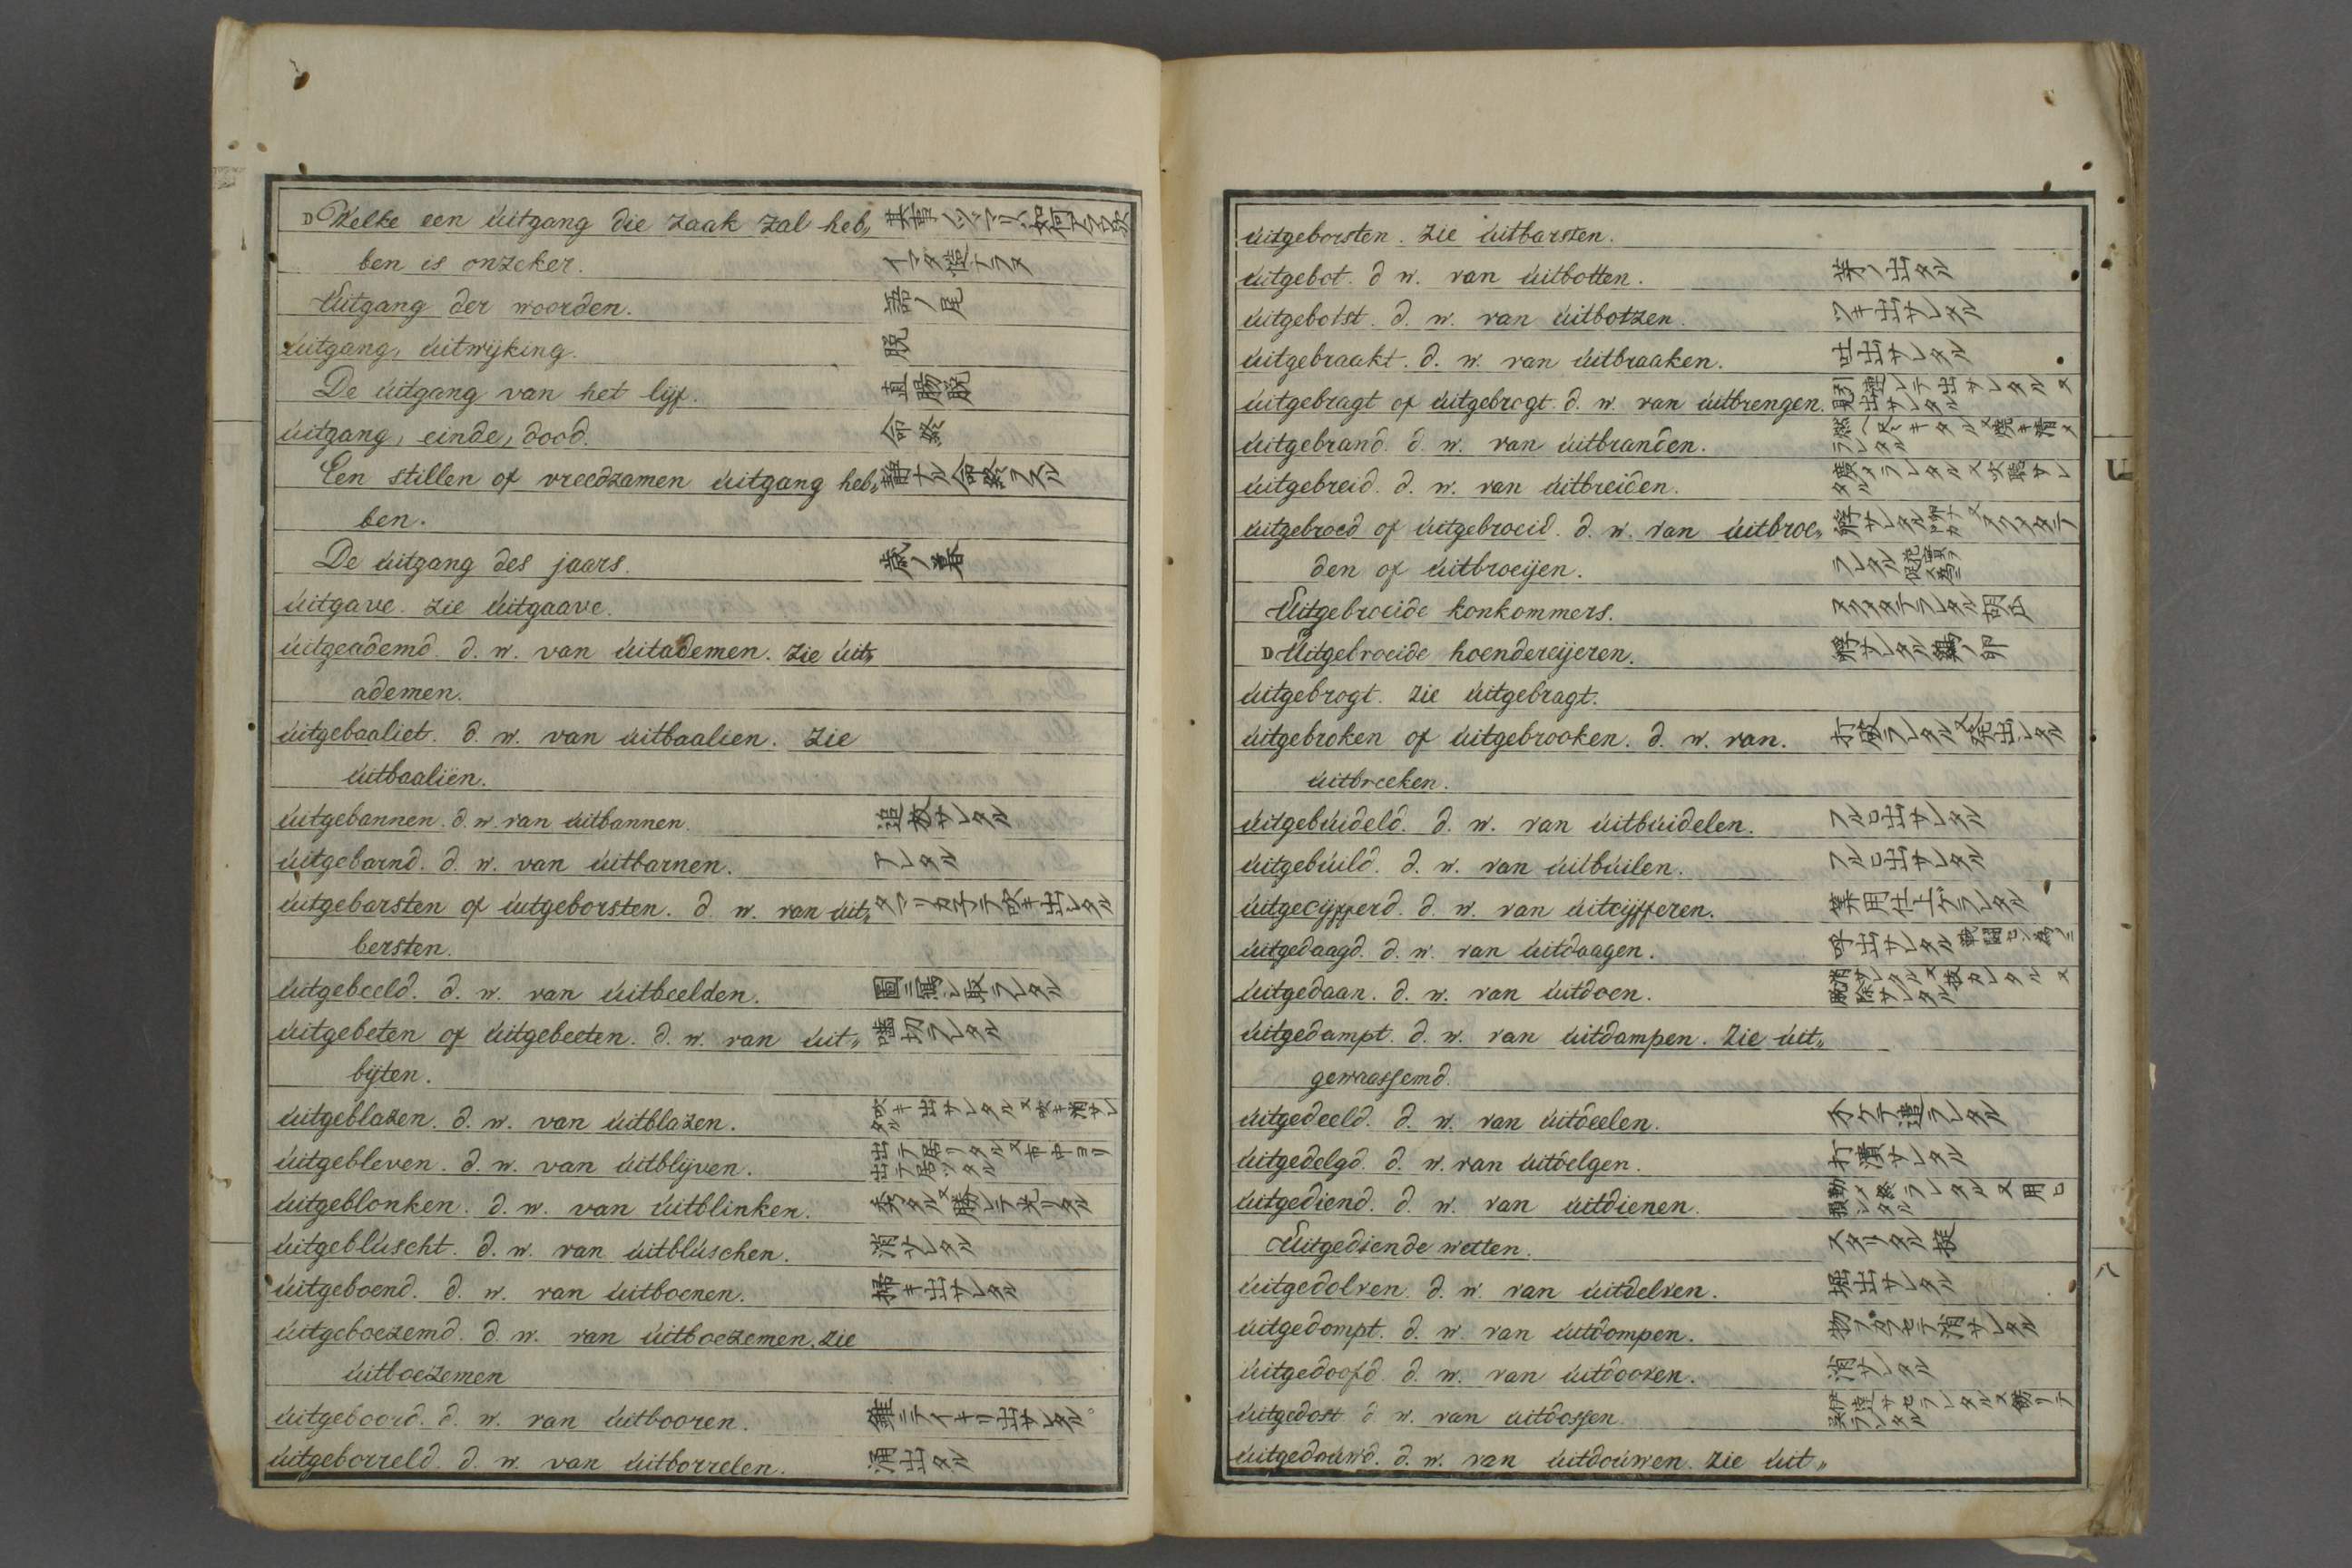 Welke een uitgang die zaak zal heb„
ben is onzeker.
Uitgang der woorden. 語ノ尾
uitgang, uitwijking. 脱
De uitgang van het lijf. 直腸脱
uitgang, einde, dood. 命終
Een stillen of vreedzamen uitgang heb„ 静ナル命終スル
ben.
De uitgang des jaars. 歳ノ暮
uitgave. zie uitgaave.
uitgeademd. d. w. van uitademen. zie uit„
ademen.
uitgebaaliet. d. w. van uitbaalien. zie
uitbaaliën.
uitgebannen. d. w. van uitbannen. 追放サレタル
uitgebarnd. d. w. van uitbarnen.
uitgebarsten of uitgeborsten. d. w. van uit„
bersten.
uitgebeeld. d. w. van uitbeelden. 圖ニ寫シ取ラレタル
uitgebeten of uitgebeeten. d. w. van uit„
bijten.
uitgeblazen. d. w. van uitblazen. 吹キ出サレタル又吹キ消サレ
タル
uitgebleven. d. w. van uitblijven.
uitgeblonken. d. w. van uitblinken.
uitgebluscht. d. w. van uitbluschen. 消サレタル
uitgeboend. d. w. van uitboenen. 掃キ出サレタル
uitgeboezemd. d. w. van uitboezemen. zie
uitboezemen
uitgeboord. d. w. van uitbooren.
uitgeborreld. d. w. van uitborrelen. 涌出タル
uitgeborsten. zie uitbarsten.
uitgebot. d w. van uitbotten. 芽ノ出タル
uitgebotst. d. w. van uitbotzen. ツキ出サレタル
uitgebraakt. d. w. van uitbraaken. 吐出サレタル
uitgebragt of uitgebrogt. d. w. van uitbrengen.
uitgebrand. d. w. van uitbranden.
uitgebreid. d. w. van uitbreiden.
uitgebroed of uitgebroeid. d. w. van uitbroe„
den of uitbroeijen.
Uitgebroeide konkommers.
Uitgebroeide hoendereijeren. 孵サレタル鶏ノ卵
uitgebrogt. zie uitgebragt.
uitgebroken of uitgebrooken. d. w. van.
uitbreeken.
uitgebuideld. d. w. van uitbuidelen. フルヒ出サレタル
uitgebuild. d. w. van uitbuilen. フルヒ出サレタル
uitgecijfferd. d. w. van uitcijfferen.
uitgedaagd. d. w. van uitdaagen. 呼出サレタル
uitgedaan. d. w. van uitdoen.
uitgedampt. d. w. van uitdampen. zie uit„
gewaassemd.
uitgedeeld. d. w. van uitdeelen. 分ケテ遣ラレタル
uitgedelgd. d. w. van uitdelgen. 打潰サレタル
uitgediend. d. w. van uitdienen.
Uitgediende wetten. スタリタル掟
uitgedolven. d. w. van uitdelven. 堀出サレタル
uitgedompt. d. w. van uitdompen.
uitgedoofd. d. w. van uitdooven. 消サレタル
uitgedost d. w. van uitdossen.
uitgedouwd. d. w. van uitdouwen. zie uit„
U
八